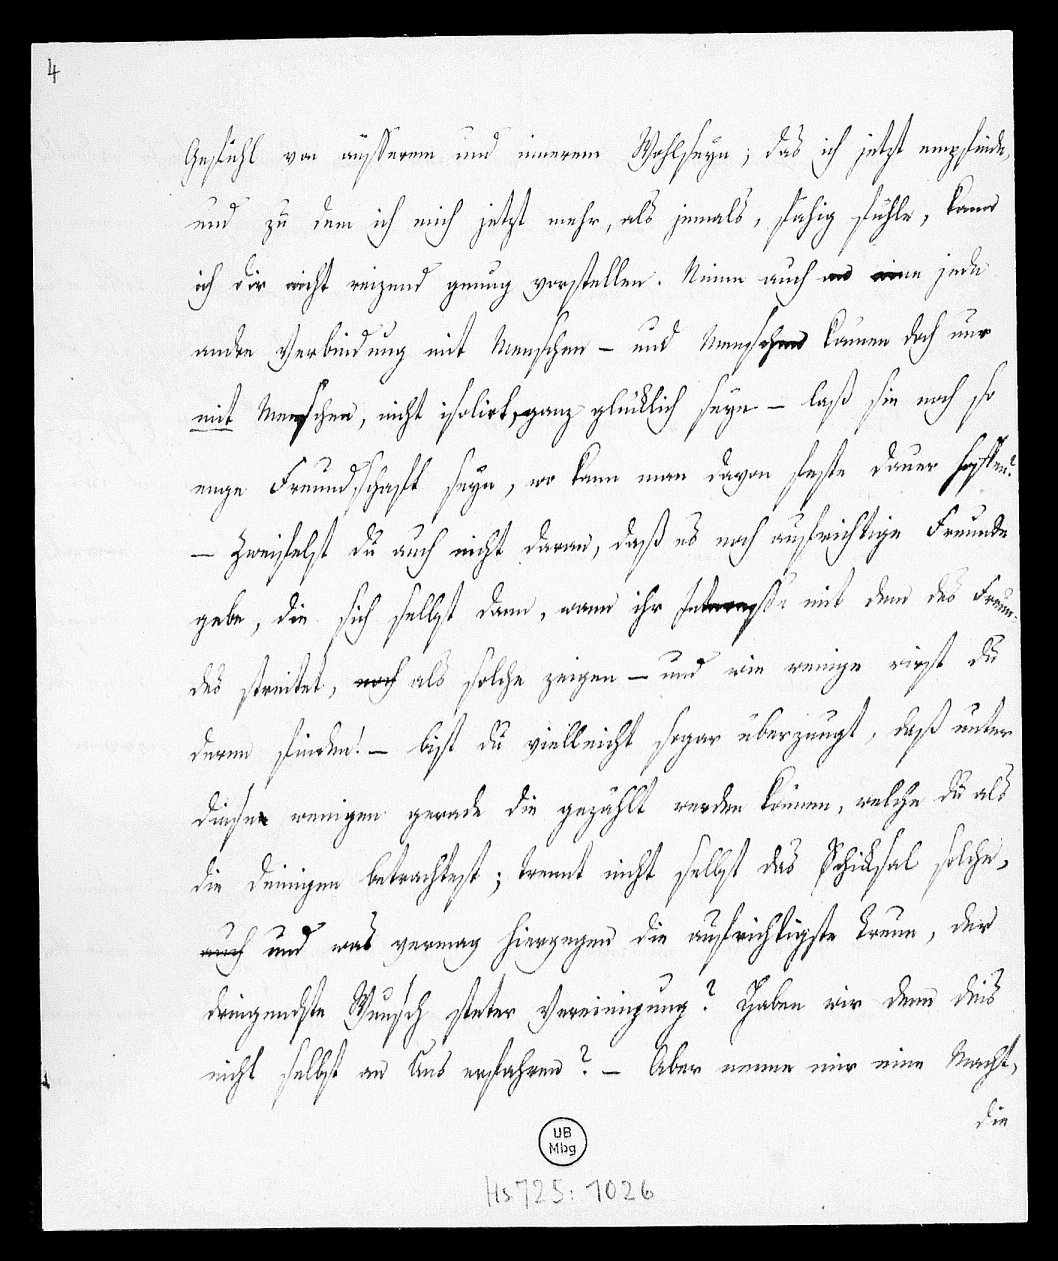 4
Gefühl von äusserem und innerem Wohlseyn; das ich jetzt empfinde,
und zu dem ich mich jetzt mehr, als jemals, fähig fühle, kann
ich dir nicht reizend genug vorstellen. Nimm auch eine jede
andre Verbindung mit Menschen – und Menschen können doch nur
mit Menschen, nicht isolirt, ganz glücklich seyn – laß sie noch so
enge Freundschaft seyn, wo kann man davon feste Dauer hoffen?
– Zweifelst du auch nicht daran, daß es noch aufrichtige Freunde
gebe, die sich selbst dann, wann ihr Interesse mit dem des Freun-
des streitet, noch als solche zeigen – und wie wenige wirst du
deren finden! – bist du vielleicht sogar überzeugt, daß unter
diesen wenigen gerade die gezählt werden können, welche du als
die deinigen betrachtest; trennt nicht selbst das Schicksal solche,
auch und was vermag hiergegen die aufrichtigste Treue, der
dringendste Wunsch steter Vereinigung? Haben wir denn dies
nicht selbst an Uns erfahren? – Aber nenne mir eine Macht,
die
UB
Mbg
Hs 725: 1026